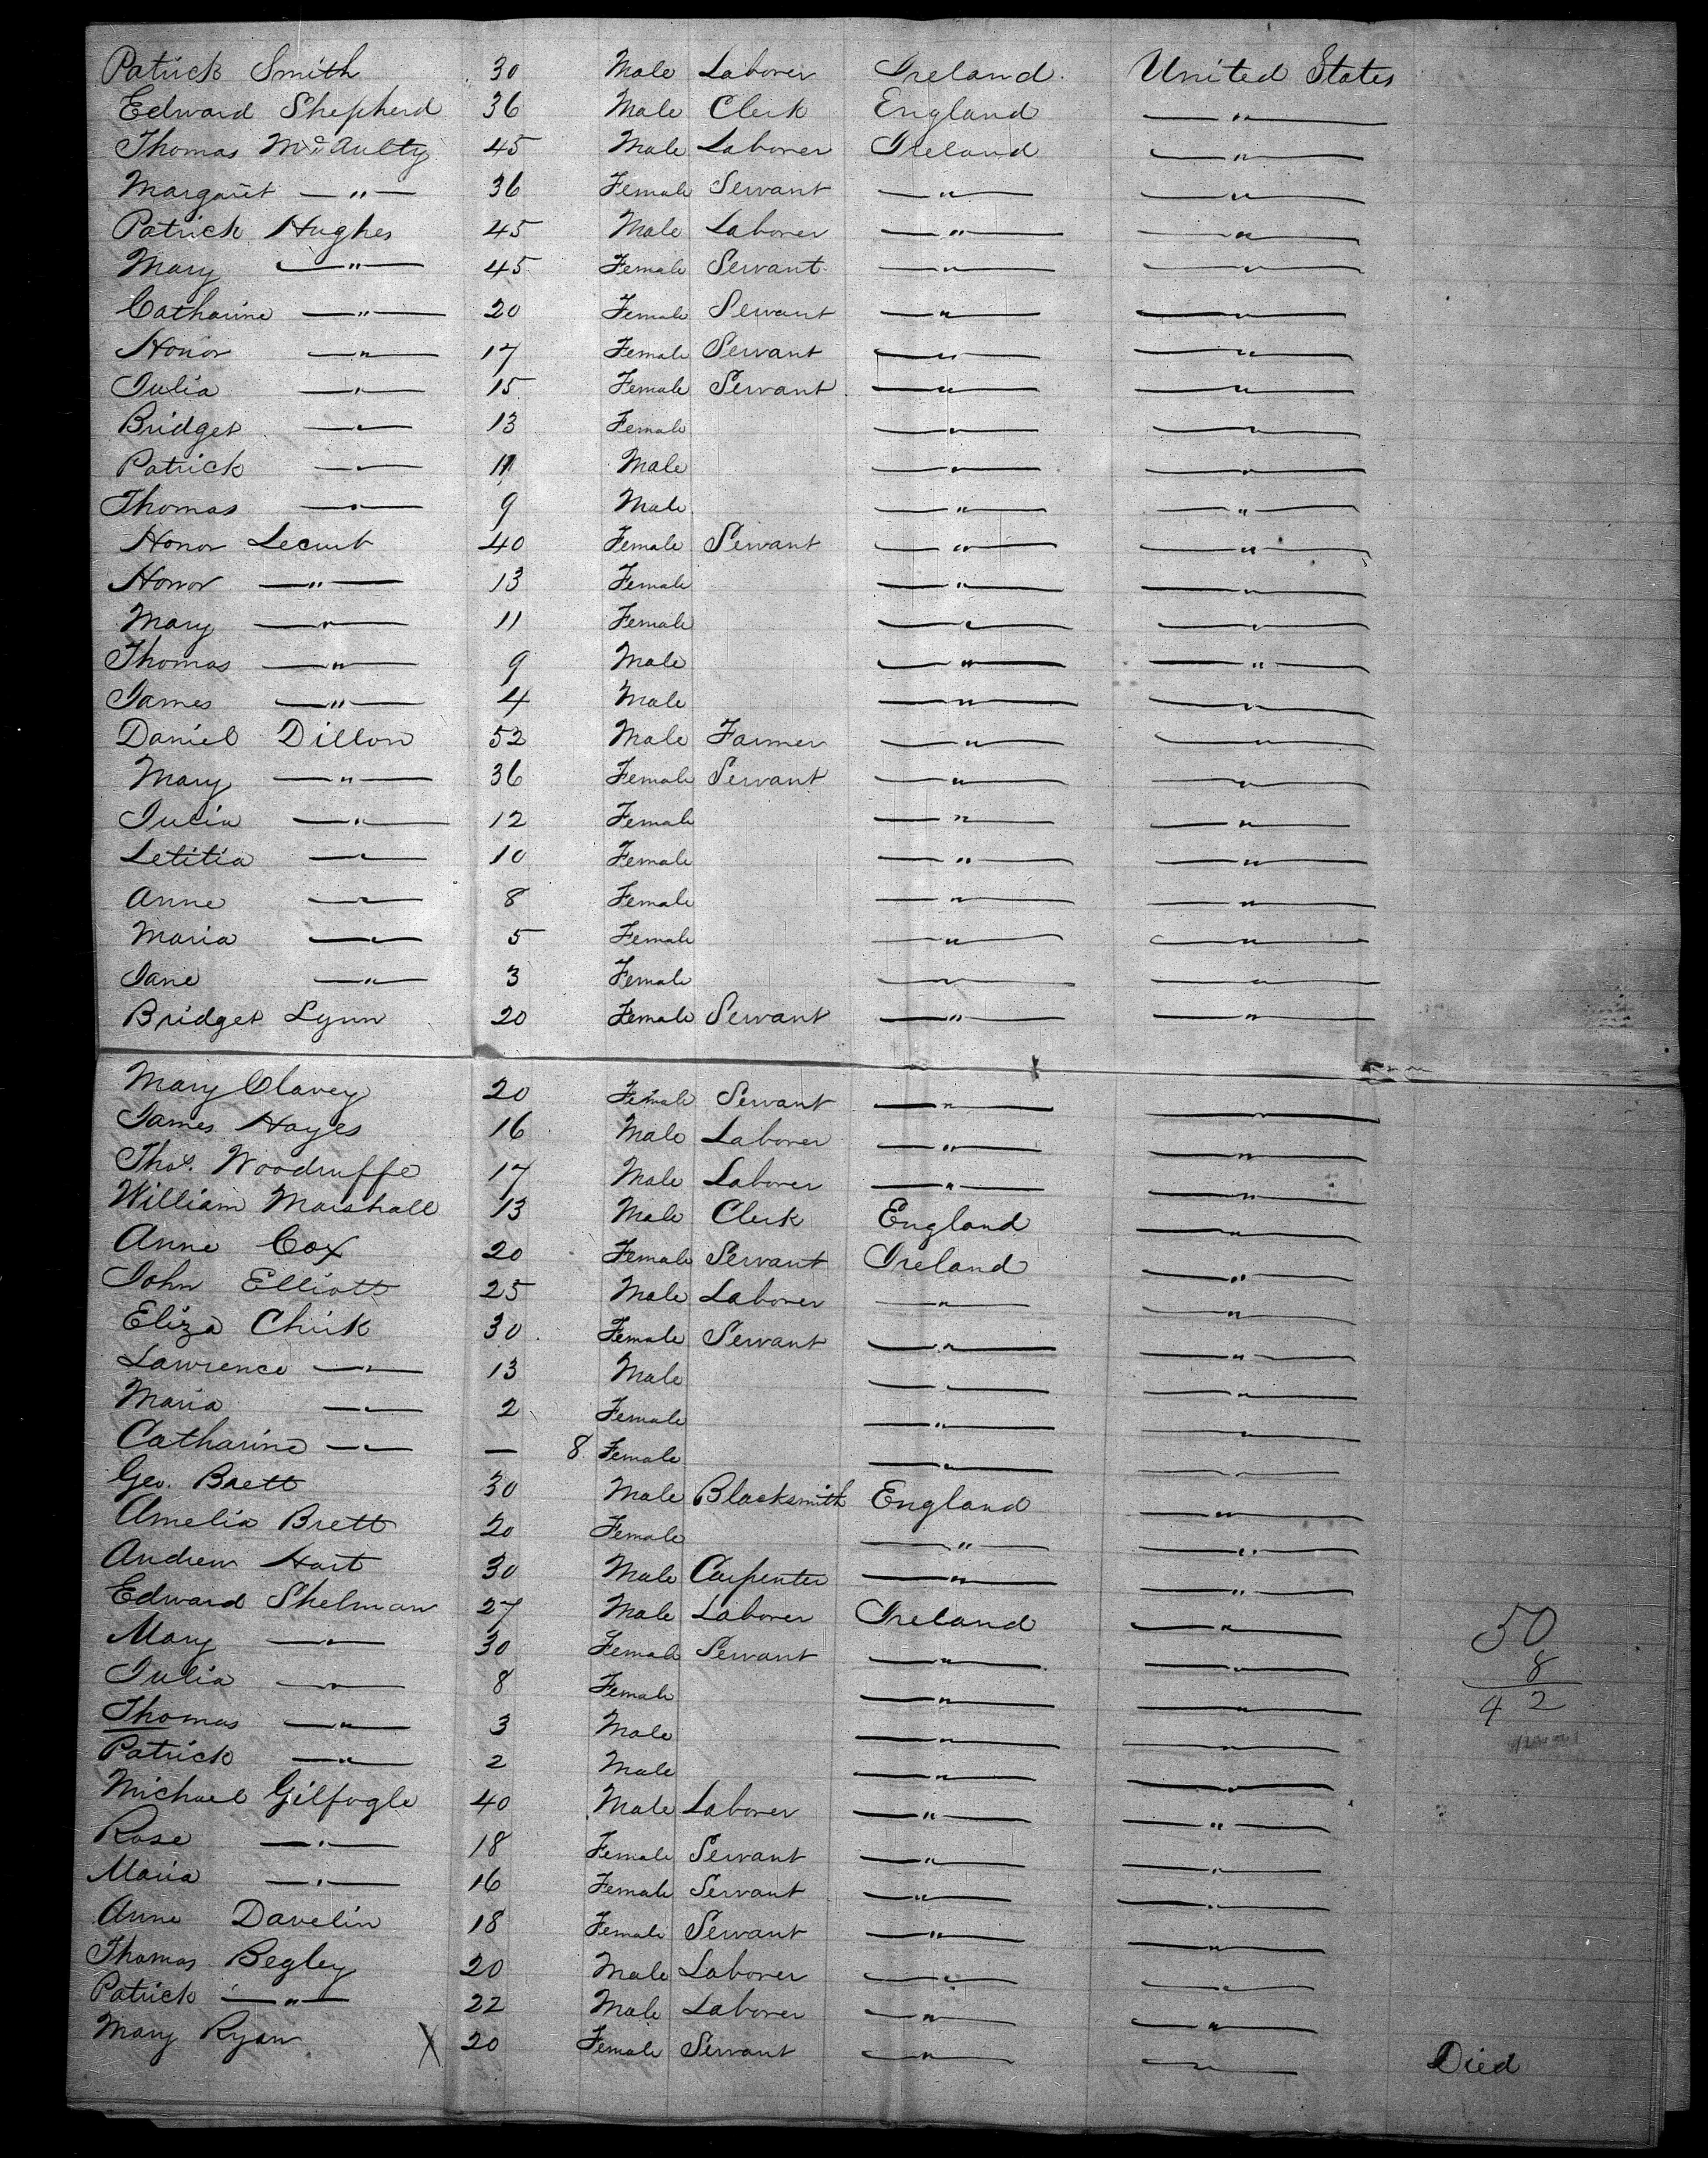 Patrick Smith 30 Male Laborer Ireland United States
Edward Shepherd 36 Male Clerk England — " —
Thomas McAulty 45 Male Laborer Ireland — " —
Margaret — " — 36 Female Servant — " — — " —
Patrick Hughes 45 Male Laborer — " — — " —
Mary — " — 45 Female Servant — " — — " —
Catharine — " — 20 Female Servant — " — — " —
Honor — " — 17 Female Servant — " — — " —
Julia — " — 15 Female Servant — " — — " —
Bridget — " — 13 Female — " — — " —
Patrick — " — 11 Male — " — — " —
Thomas — " — 9 Male — " — — " —
Honor 40 Female Servant — " — — " —
Honor — " — 13 Female — " — — " —
Mary — " — 11 Female — " — — " —
Thomas — " — 9 Male — " — — " —
James — " — 4 Male — " — — " —
Daniel Dillon 52 Male Farmer — " — — " —
Mary — " — 36 Female Servant — " — — " —
Julia — " — 12 Female — " — — " —
Letitia — " — 10 Female — " — — " —
Anne — " — 8 Female — " — — " —
Maria — " — 5 Female — " — — " —
Jane — " — 3 Female — " — — " —
Bridget Lynn 20 Female Servant — " — — " —
Mary Clavey 20 Female Servant — " — — " —
James Hayes 16 Male Laborer — " — — " —
Thos. Woodruffe 17 Male Laborer — " — — " —
William Marshall 13 Male Clerk England — " —
Anne Cox 20 Female Servant Ireland — " —
John Elliott 25 Male Laborer — " — — " —
Eliza Chirk 30 Female Servant — " — — " —
Lawrence — " — 13 Male — " — — " —
Maria — " — 2 Female — " — — " —
Catharine — " — — 8 Female — " — — " —
Geo. Brett 30 Male Blacksmith England — " —
Amelia Brett 20 Female — " — — " —
Andrew Hart 30 Male Carpenter — " — — " —
Edward Shelman 27 Male Laborer Ireland — " —
Mary — " — 30 Female Servant — " — — " —
50
Julia — " — 8 Female — " — — " —
8
Thomas — " — 3 Male — " — — " —
42
Patrick — " — 2 Male — " — — " —
Michael Gilfogle 40 Male Laborer — " — — " —
Rose — " — 18 Female Servant — " — — " —
Maria — " — 16 Female Servant — " — — " —
Anne Davelin 18 Female Servant — " — — " —
Thomas Begley 20 Male Laborer — " — — " —
Patrick — " — 22 Male Laborer — " — — " —
Mary Ryan X 20 Female Servant — " — — " — Died